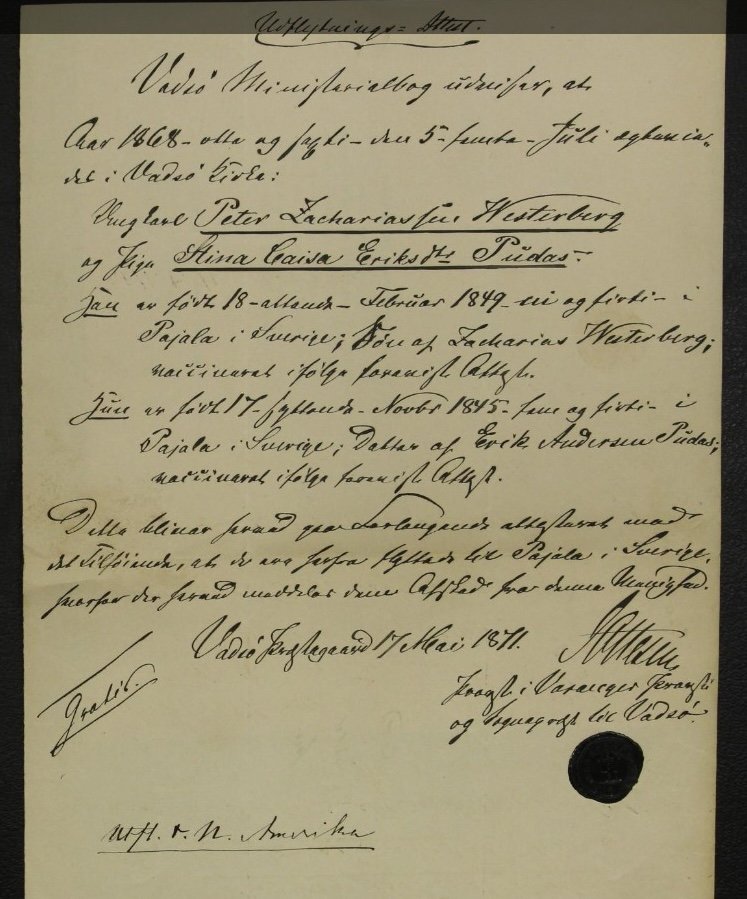 Udflytnings=Attest.
Vadsö Ministerialbog udviser, at
Aar 1868 - otte og sexti - den 5 - femte - Juli ægtevie„
det i Vadsö Kirke:
Ungkarl Peter Zachariassen Westerberg
og Pige Stina Caisa Eriksdtr Pudas.
Han er født 18 - attende - Februar 1849 - ni og firti - i
Pajala i Sverige; Søn af Zacharias Westerberg;
vaccineret ifølge forevist Attest.
Hun er født 17 - syttende - Novbr 1845 - fem og firti - i
Pajala i Sverige; Datter af Erik Andersen Pudas;
vaccineret ifølge forevist Attest.
Dette bliver herved paa Forlangende attesteret med
det Tilføiende, at de ere herfra flyttede til Pajala i Sverige,
hvorfor der herved meddeles dem Afsked fra denne Menighed.
Vadsö Præstegaard 17 Mai 1871.
Provst i Varanger Provsti
og Sognepræst til Vadsø.
Gratis.
Utfl. t. N. Amerika